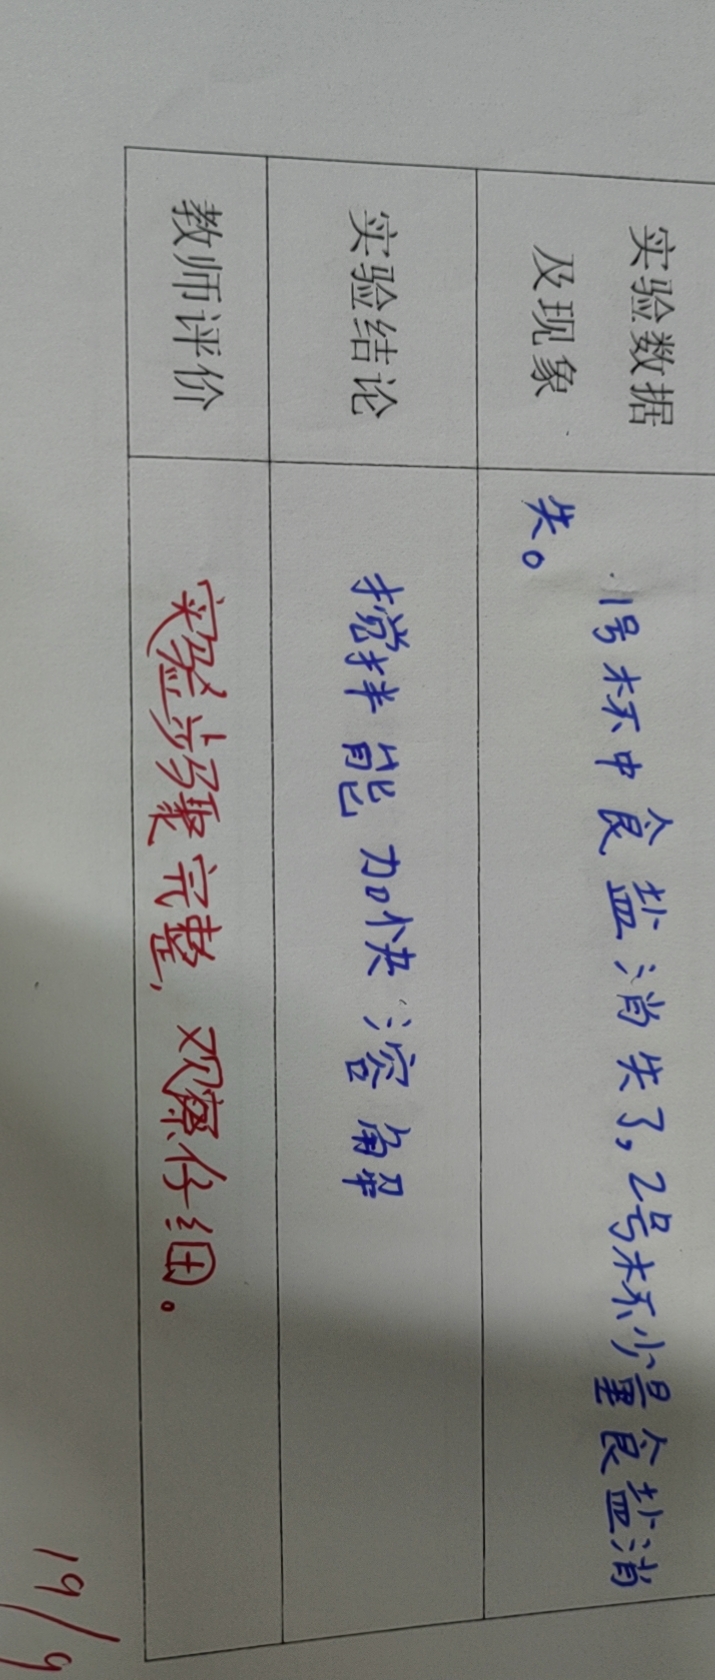 实验数据
及现象
1号杯中食盐消失了,2号杯少量食盐消
失。
实验结论
搅拌能加快溶解
教师评价
实验步骤完整,观察仔细。
19/9